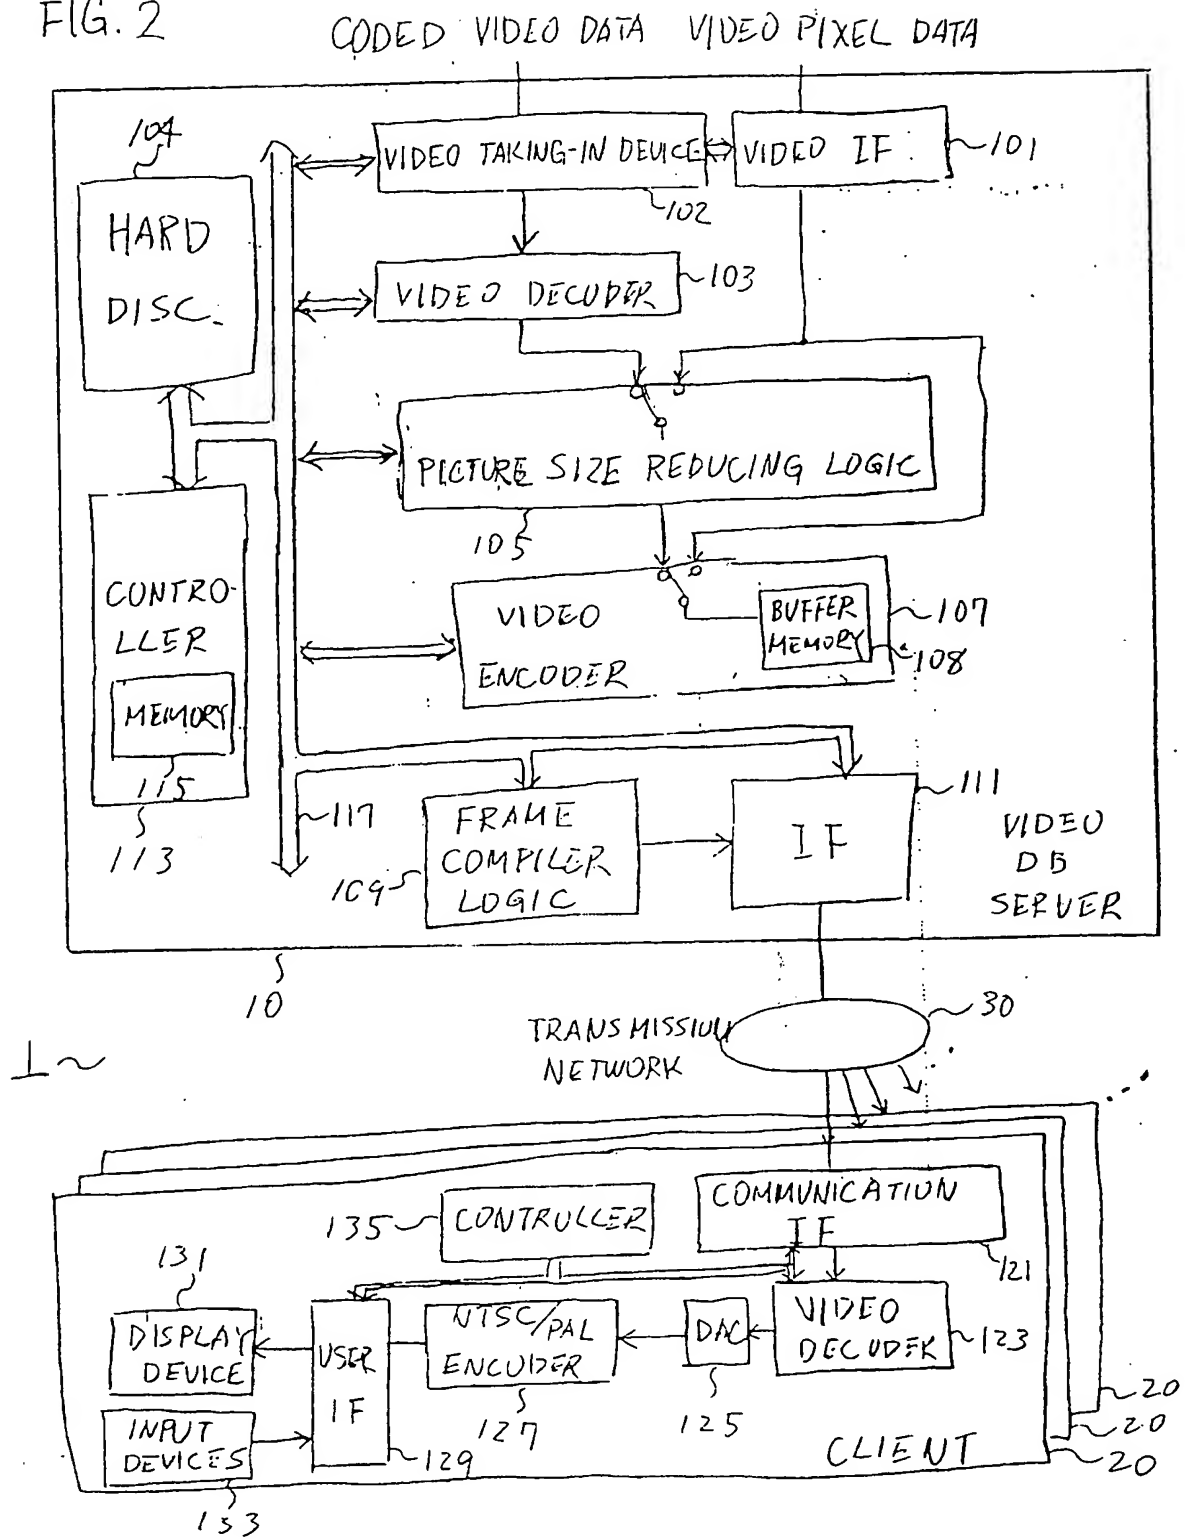 FIG. 2
CODED VIDEO DATA VIDEO PIXEL DATA
104
HARD
DISC.
VIDEO TAKING-IN DEVICE
102
VIDEO IF
101
VIDEO DECODER
103
PICTURE SIZE REDUCING LOGIC
105
CONTRO-
LLER
MEMORY
115
113
VIDEO
ENCODER
BUFFER
MEMORY
107
108
117
FRAME
COMPILER
LOGIC
109
IF
111
VIDEO
DB
SERVER
10
TRANSMISSION
NETWORK
30
1
135
CONTROLLER
COMMUNICATION
IF
121
131
DISPLAY
DEVICE
USER
IF
129
NTSC/PAL
ENCODER
127
DAC
125
VIDEO
DECODER
123
INPUT
DEVICES
133
CLIENT
20
20
20